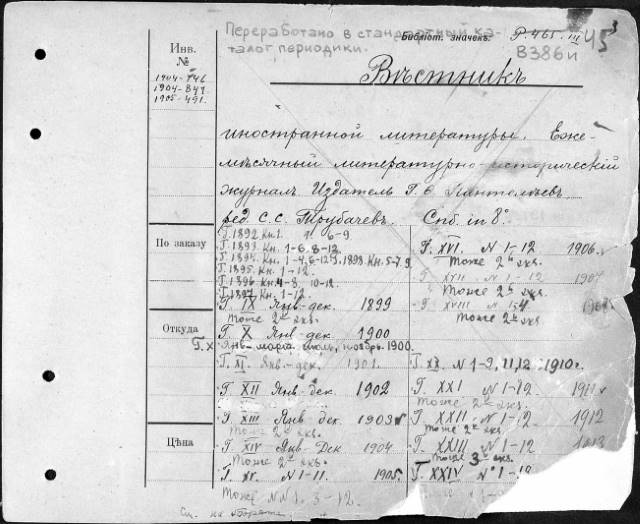 Переработано в стандартный ка-
талог периодики.
Библіот. значекъ. P-465 III 45 3
B386и
Инв.
№
1904-746
1904-847.
1905-491.
Вѣстникъ
иностранной литературы. Еже-
мѣсячный литературно-историческій
журналъ. Издатель Г. Ѳ. Пантелѣевъ.
ред. С. С. Трубачевъ. Спб. in 8°
По заказу
Г. 1892 Кн. 1. 6-9.
Г. 1893. Кн. 1-6, 8-12.
Г. 1894. Кн. 1-4, 6-12. Г. 1898. Кн. 5-7. 9.
Г. 1895. Кн. 1-12.
Г. 1896 Кн. 4-8. 10-12.
Г. 1897. Кн. 1-12.
Г. IX Янв-дек. 1899
Тоже 2й экз.
Откуда
Г. X Янв-дек. 1900
Г. X Янв-март, июль, ноябрь 1900.
Г. XI. Янв-дек. 1901.
Г. XII Янв-дек. 1902
Тоже 2й экз.
Г. XIII Янв дек. 1903
Тоже 2й экз.
Цѣна
Г. XIV Янв. Дек 1904
Тоже 2й экз.
Г. XV. N 1-11. 1905.
Тоже NN 1. 3-12.
См. на обороте
Г. XVI. N 1-12 1906.
Тоже 2й экз.
Г XVII N 1-12 1907
Тоже 2й экз.
Г XVIII N 1-4
Тоже 2й экз.
Г. XX. N 1-9, 11, 12. 1910г.
Г. XXI N 1-12 1911
Тоже 2й экз.
Г. XXII N 1-12 1912
Тоже 2й экз.
Г. XXIII N 1-12 1913
Тоже 3й экз.
Г. XXIV N 1-12
Тоже